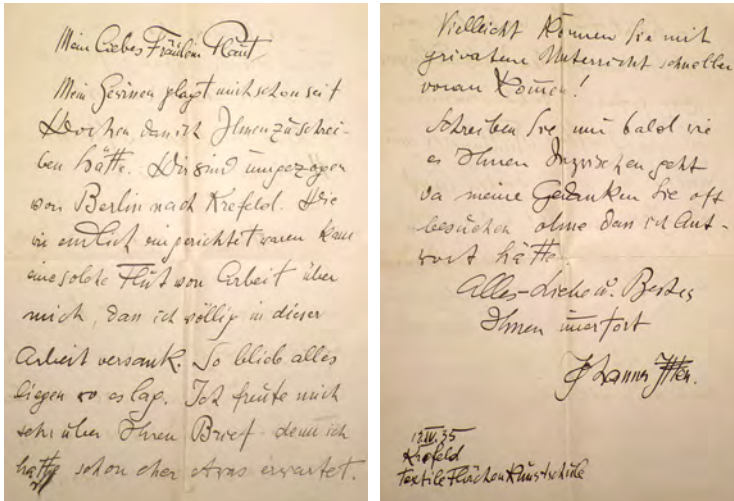 Mein Liebes Fräulein Plaut
Mein Gewissen plagt mich schon seit
Wochen, dass ich Ihnen zu schrei-
ben hätte. Wir sind umgezogen
von Berlin nach Krefeld. Wie
wir endlich eingerichtet waren kam
eine solche Flut von Arbeit über
mich, dass ich völlig in dieser
Arbeit versank. So blieb alles
liegen wo es lag. Ich freute mich
sehr über Ihren Brief - denn ich
hatte schon eher etwas erwartet.
Vielleicht können Sie mit
privatem Unterricht schneller
voran kommen!
Schreiben Sie mir bald wie
es Ihnen inzwischen geht
da meine Gedanken Sie oft
besuchen ohne dass ich Ant-
wort hätte.
Alles Liebe u. Bestes
Ihnen
Johannes Itten.
12.IV.35
Krefeld
Textile Flächenkunstschule